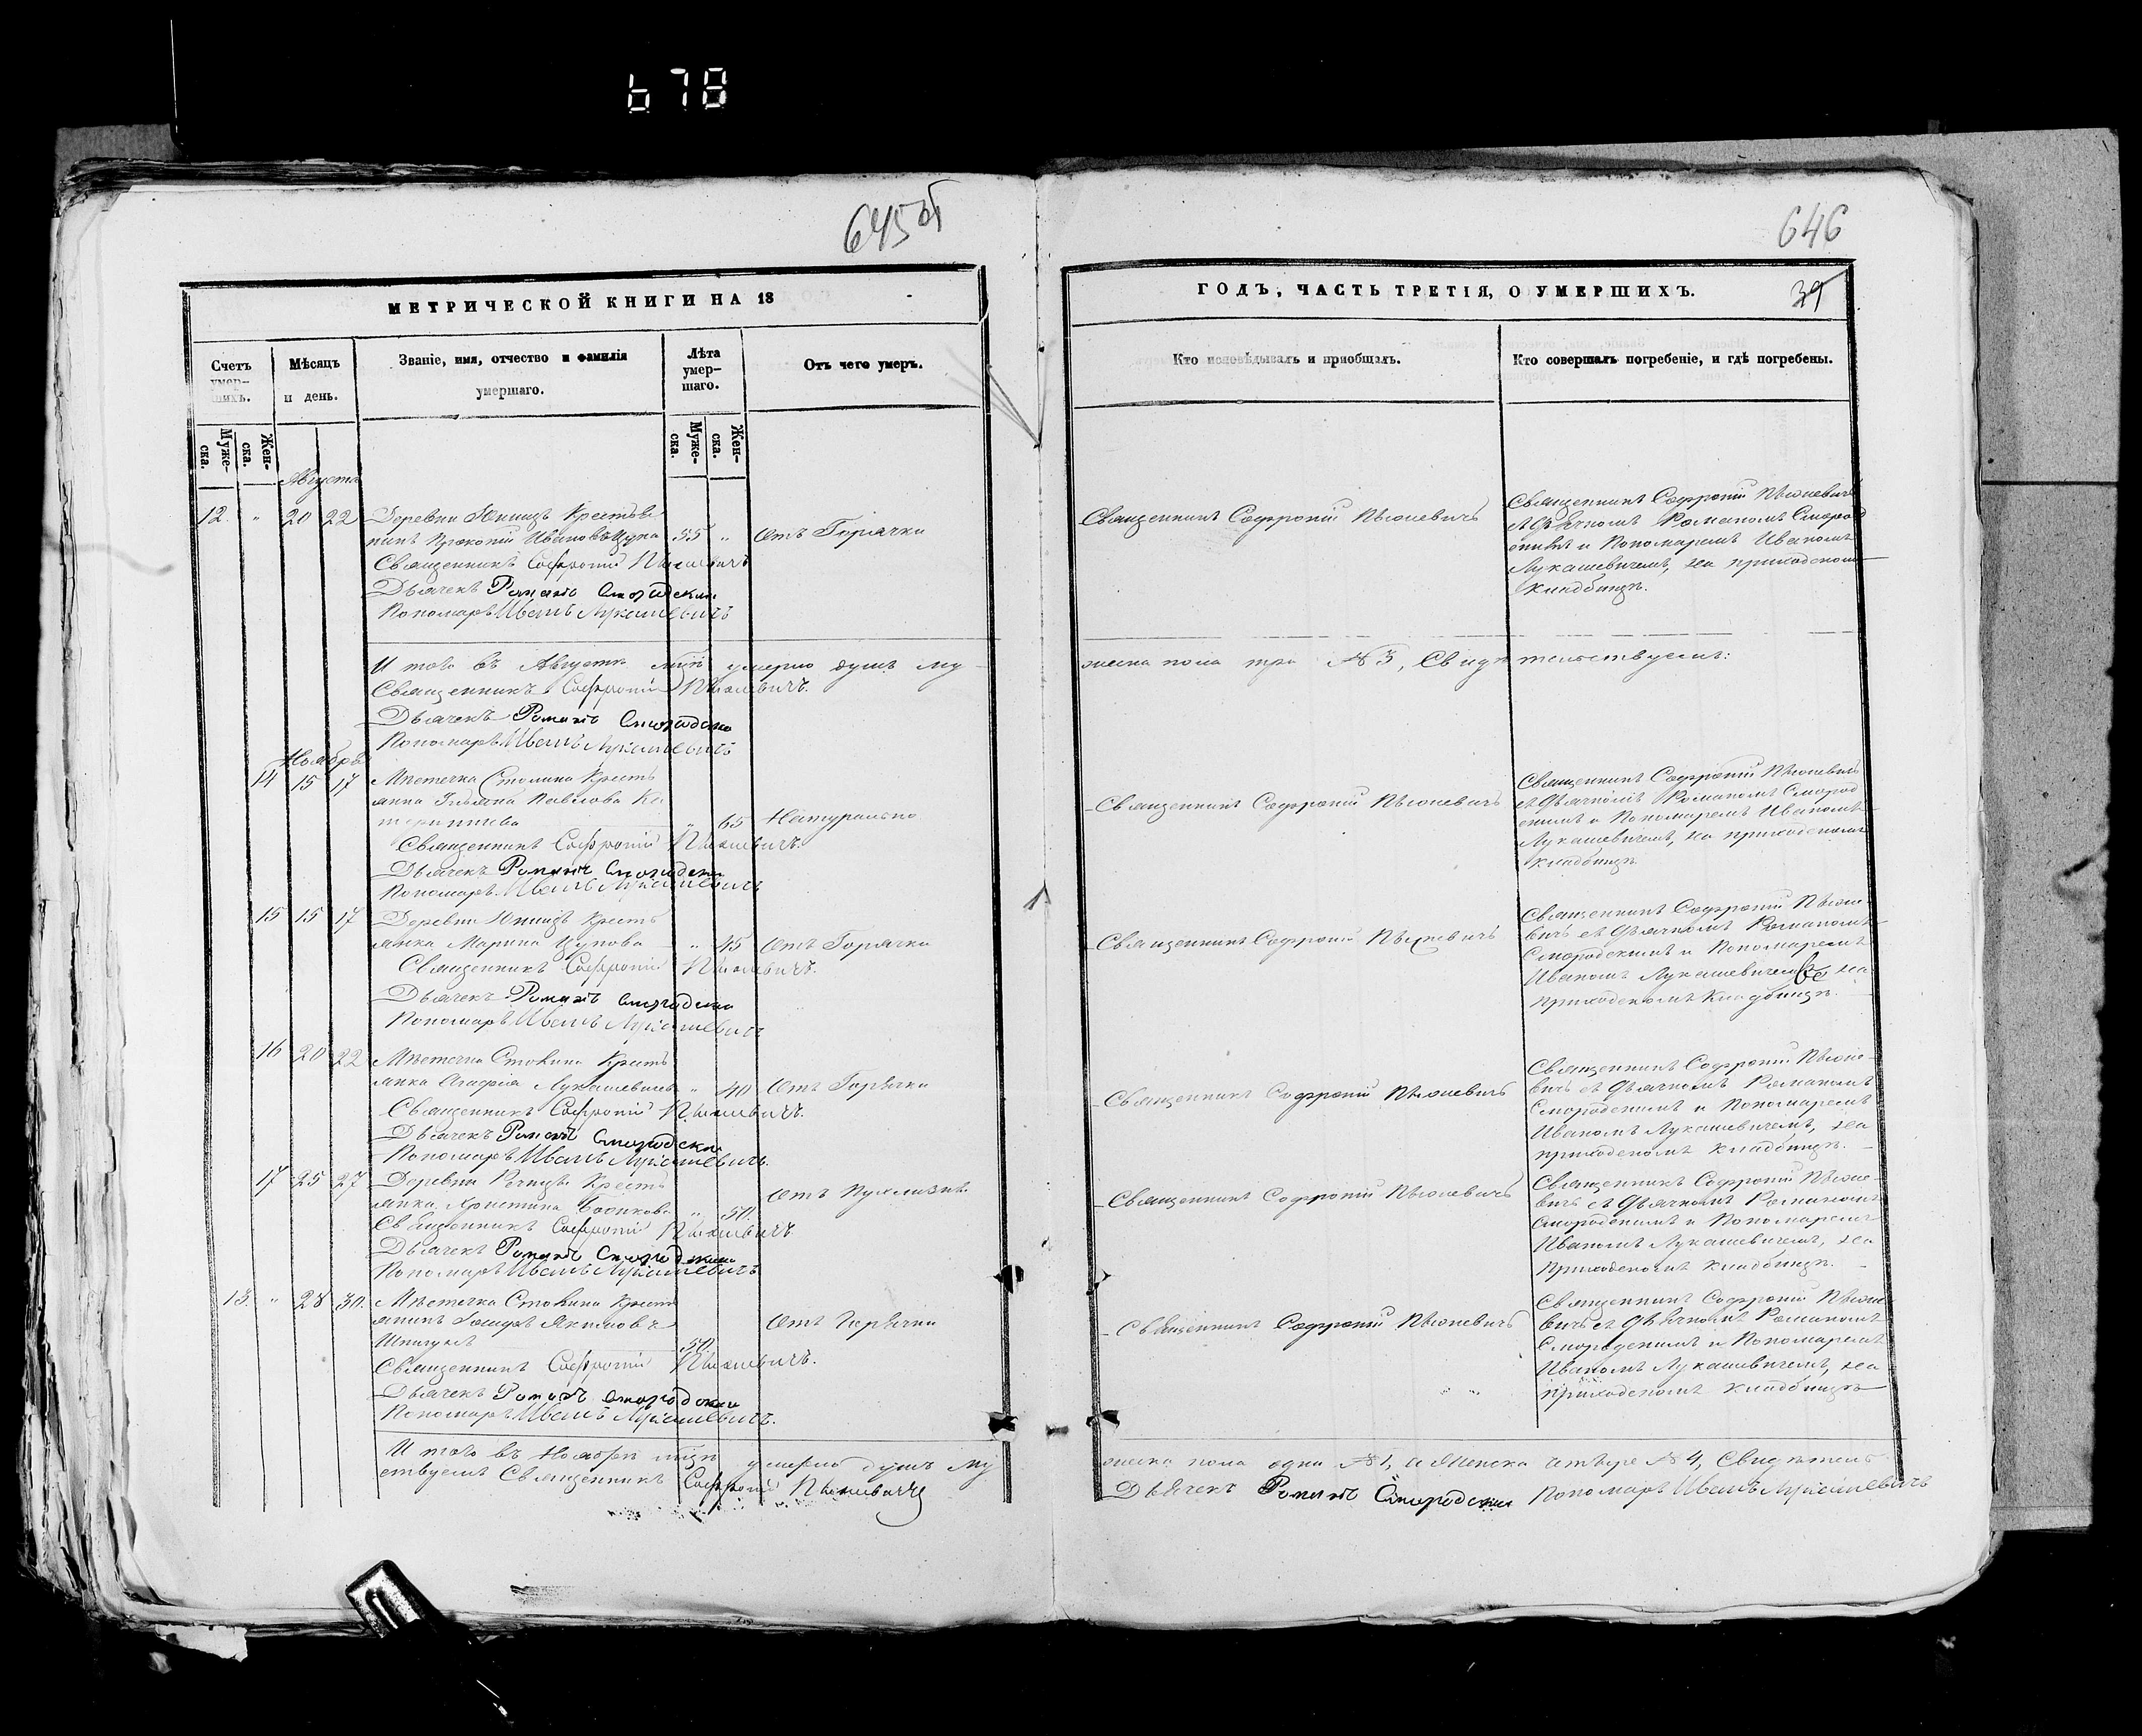 678
645 об
646
МЕТРИЧЕСКОЙ КНИГИ НА 18
ГОДЪ, ЧАСТЬ ТРЕТІЯ, О УМЕРШИХЪ.
39
Счетъ умер-шихъ.
Мѣсяцъ и день.
Званіе, имя, отчество и фамилія умершаго.
Лѣта умер-шаго.
Отъ чего умеръ.
Кто исповѣдывалъ и приобщалъ.
Кто совершалъ погребеніе, и гдѣ погребены.
Муже-ска.
Жен-ска.
Муже-ска.
Жен-ска.
Августа
12. " 20 22
Деревни Юнищъ Крестья
нинъ Прокопій Ивановъ 55 " Отъ Горячки
Священникъ Софроній
Дьячекъ Романъ Смородскій
Пономарь Иванъ Лукашевичъ
Священникъ Софроній
Священникъ Софроній
съ Дьячкомъ Романомъ Смород
скимъ и Пономаремъ Иваномъ
Лукашевичемъ, на приходскомъ
кладбищѣ.
И того въ Августѣ м̃цѣ умерло душъ му
жеска пола три № 3, Свидѣтельствуемъ:
Священникъ Софроній
Дьячекъ Романъ Смородскій
Пономарь Иванъ Лукашевичъ
Ноябрь
14 15 17
Мѣстечка Столина Кресть
янка Павлова
" 65 Натурально
Священникъ Софроній
Дьячекъ Романъ Смородскій
Пономарь Иванъ Лукашевичъ
Священникъ Софроній
Священникъ Софроній
съ Дьячкомъ Романомъ Смород
скимъ и Пономаремъ Иваномъ
Лукашевичемъ, на приходскомъ
кладбищѣ
15 15 17
Деревни Юнищъ Кресть
янка Марина Цупова " 45 Отъ Горячки
Священникъ Софроній
Дьячекъ Романъ Смородскій
Пономарь Иванъ Лукашевичъ
Священникъ Софроній
Священникъ Софроній
съ Дьячкомъ Романомъ
Смородскимъ и Пономаремъ
Иваномъ Лукашевичемъ на
приходскомъ кладбищѣ.
16 20 22
Мѣстечка Столина Кресть
янка Агафія Лукашевичева " 40 Отъ Горячки
Священникъ Софроній
Дьячекъ Романъ Смородскій
Пономарь Иванъ Лукашевичъ.
Священникъ Софроній
Священникъ Софроній
съ Дьячкомъ Романомъ
Смородскимъ и Пономаремъ
Иваномъ Лукашевичемъ, на
приходскомъ кладбищѣ.
17 25 27
Деревни Кресть
янка Христина " 50. Отъ
Священникъ Софроній
Дьячекъ Романъ Смородскій
Пономарь Иванъ Лукашевичъ
Священникъ Софроній
Священникъ Софроній
съ Дьячкомъ Романомъ
Смородскимъ и Пономаремъ
Иваномъ Лукашевичемъ, на
приходскомъ кладбищѣ.
13. " 28 30.
Мѣстечка Столина Кресть
янинъ Якимовъ Отъ Горячки
50.
Священникъ Софроній
Дьячекъ Романъ Смородскій
Пономарь Иванъ Лукашевичъ.
Священникъ Софроній
Священникъ Софроній
съ Дьячкомъ Романомъ
Смородскимъ и Пономаремъ
Иваномъ Лукашевичемъ, на
приходскомъ кладбищѣ
И того въ Ноябрѣ м̃цѣ умерло душъ му
жеска пола одна № 1, а Женска четыре № 4, Свидѣтель
ствуемъ Священникъ Софроній
Дьячекъ Романъ Смородскій Пономарь Иванъ Лукашевичъ